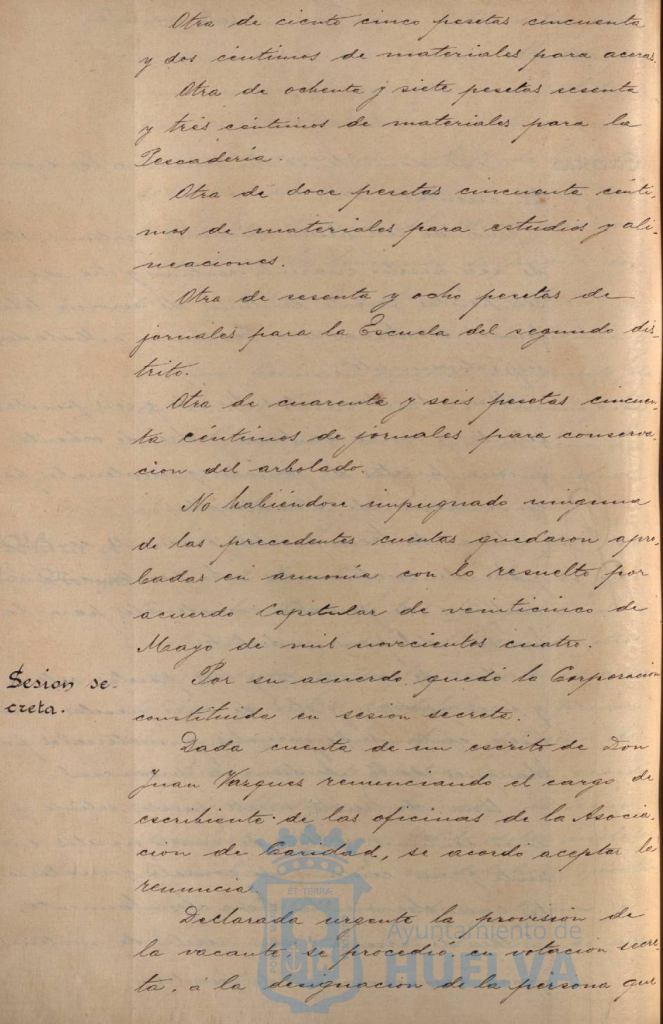 Otra de ciento cinco pesetas cincuenta
y dos céntimos de materiales para aceras.
Otra de ochenta y siete pesetas sesenta
y tres céntimos de materiales para la
Pescadería.
Otra de doce pesetas cincuenta cénti-
mos de materiales para estudios y ali-
neaciones.
Otra de sesenta y ocho pesetas de
jornales para la Escuela del segundo dis-
trito.
Otra de cuarenta y seis pesetas cincuen-
ta céntimos de jornales para conserva-
cion del arbolado.
No habiéndose impugnado ninguna
de las precedentes cuentas quedaron apro-
badas en armonía con lo resuelto por
acuerdo Capitular de veinticinco de
Mayo de mil novecientos cuatro.
Sesion se-
creta.
Por su acuerdo quedó la Corporacion
constituida en sesion secreta.
Dada cuenta de un escrito de Don
Juan Vazques renunciando el cargo de
escribiente de las oficinas de la Asocia-
cion de Caridad, se acordó aceptar la
renuncia.
Declarada urgente la provision de
la vacante, se procedió en votacion secre-
ta, á la designacion de la persona que
ET TERRAE
Ayuntamiento de
HUELVA